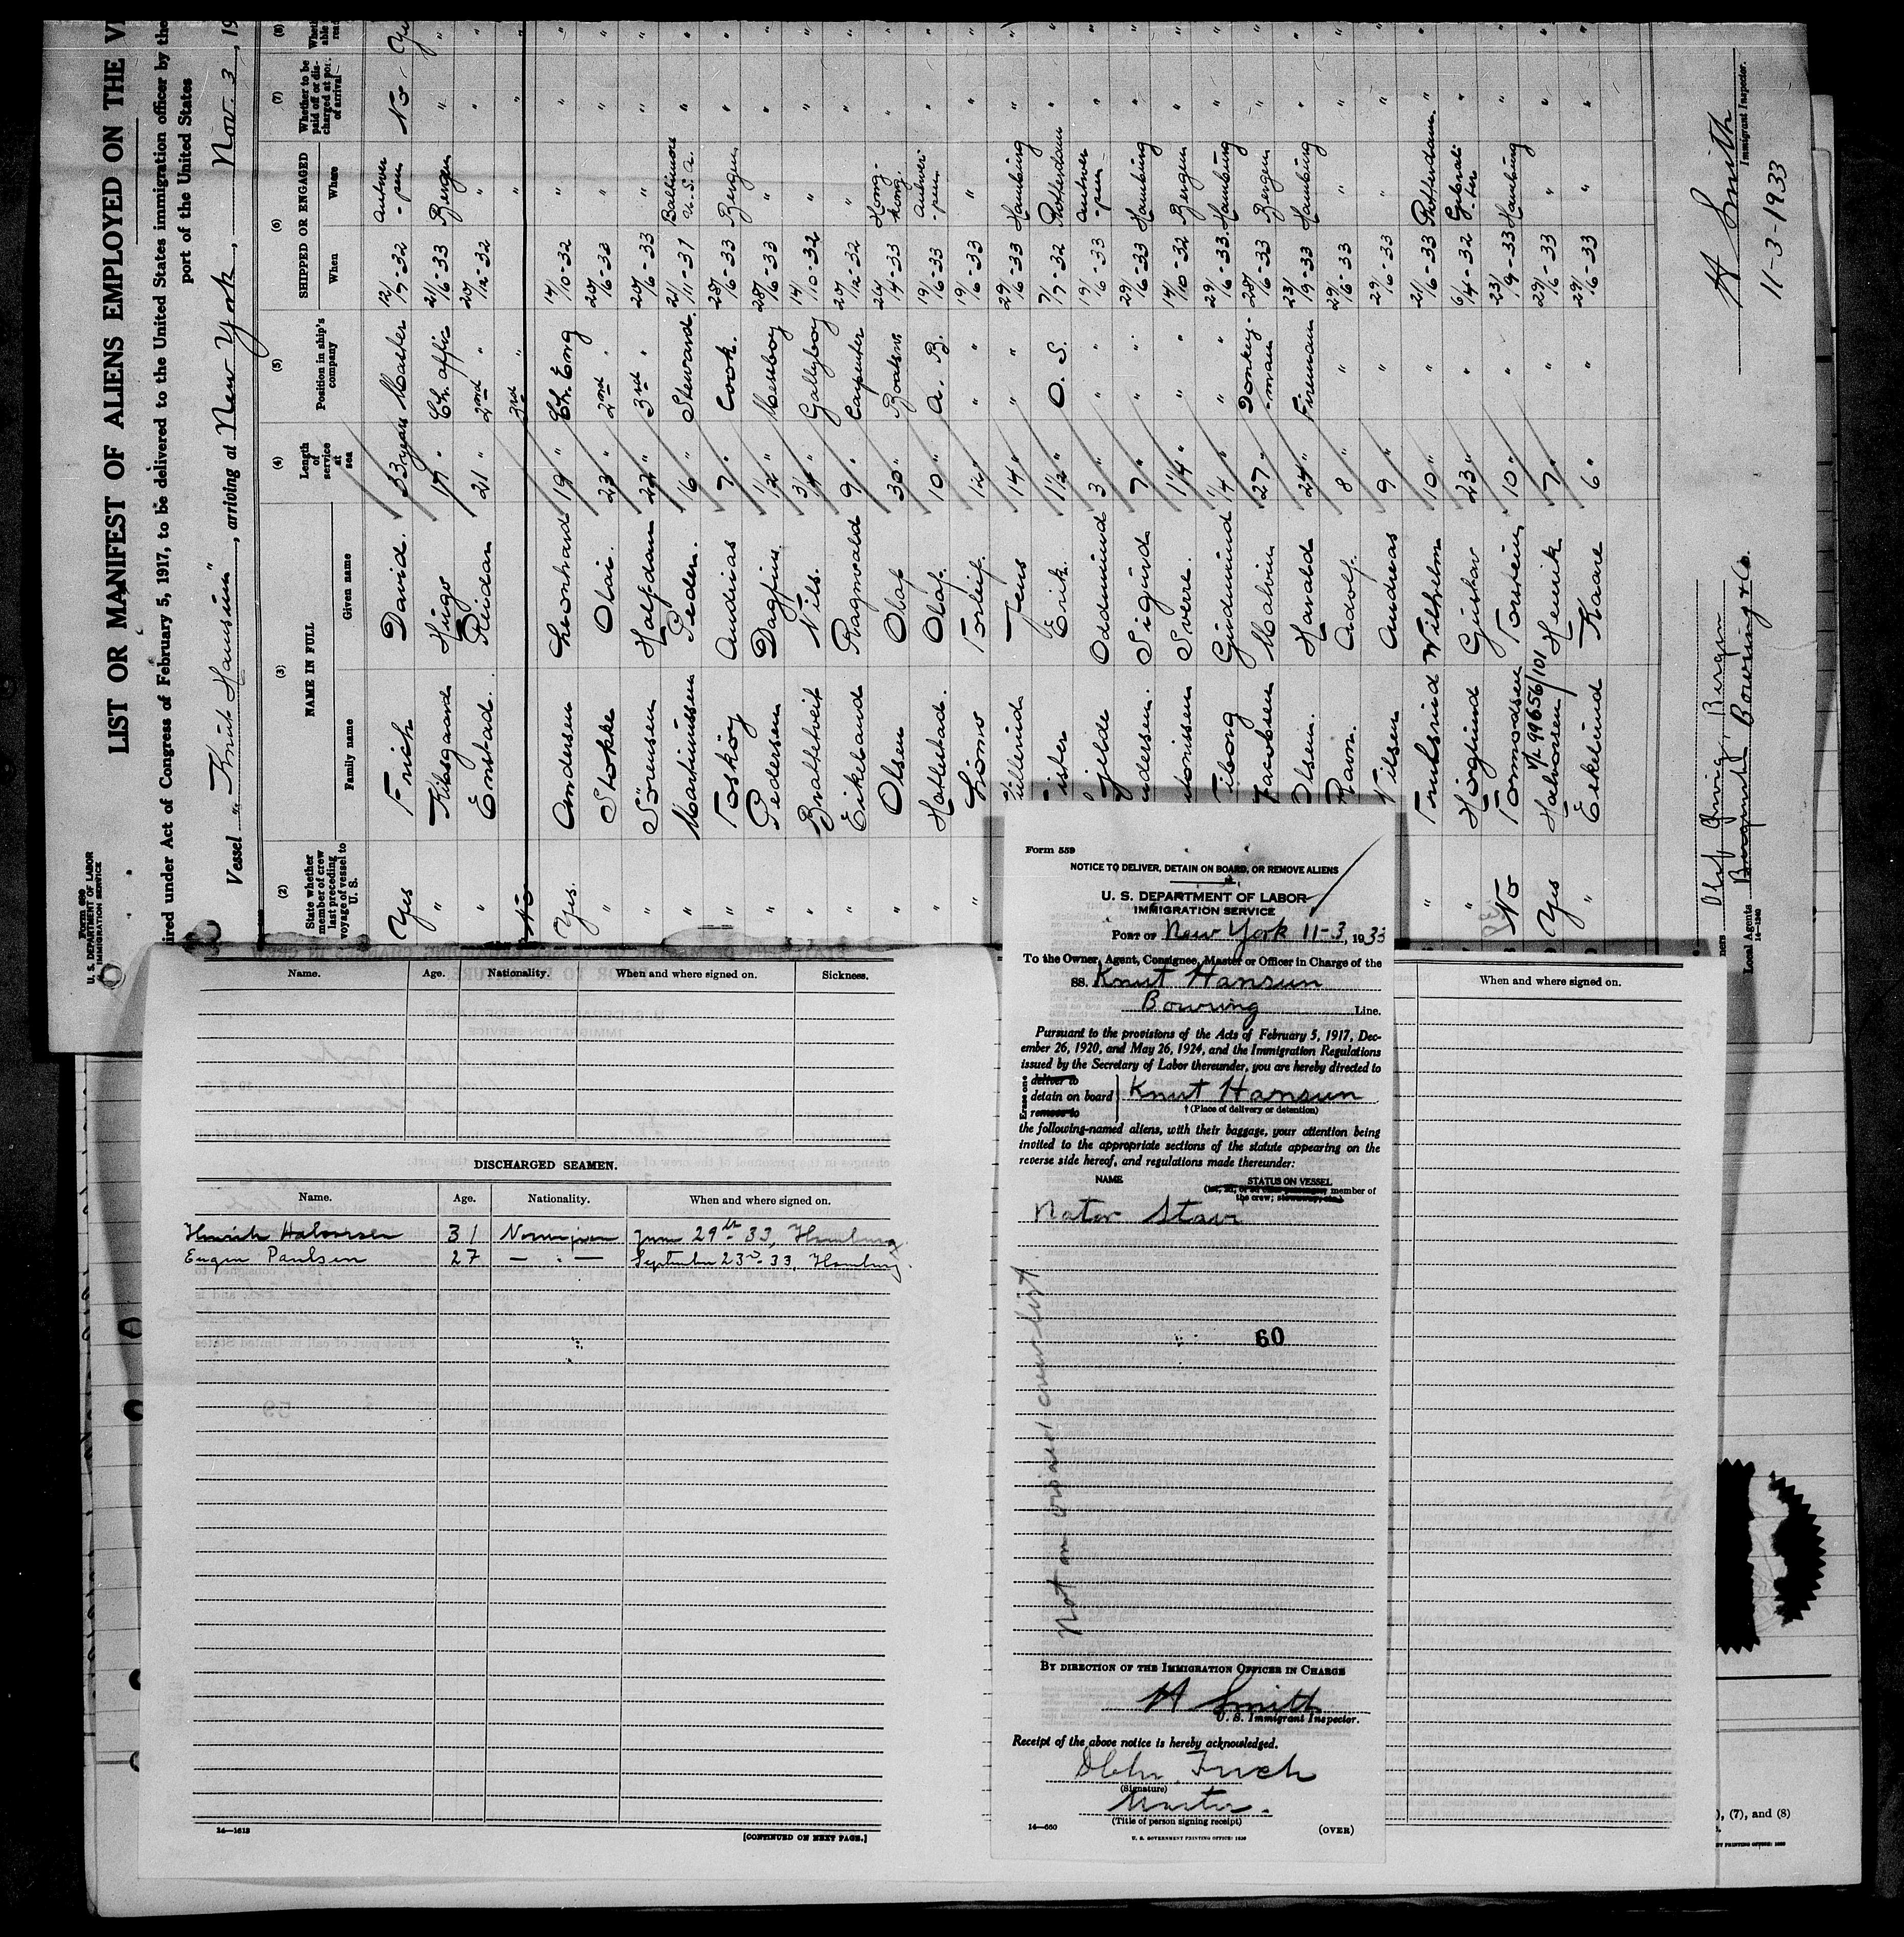 Form 689
U. S. DEPARTMENT OF LABOR
IMMIGRATION SERVICE
LIST OR MANIFEST OF ALIENS EMPLOYED ON THE
ired under Act of Congress of February 5, 1917, to be delivered to the United States immigration officer by the
port of the United States
Vessel "Knut Hamsun", arriving at New York, Nov. 3, 19
(2) (3) (4) (5) (6) (7) (8)
State whether member of crew last preceding voyage of vessel to U. S.
NAME IN FULL
Family name Given name
Length of service at sea
Position in ship's company
SHIPPED OR ENGAGED
When Where
Whether to be paid off or discharged at port of arrival
Yes Frich David. 33 years Master 12/7-32 Antwer-pen No
" Kilsgaard Hugo 17 " Ch. offic 21/6-33 Bergen "
" Enstad. Reidar 21 " 2nd " 20/12-32 " "
No 3rd " " "
Yes. Andersen Leonhard 19 " Ch. Eng 14/10-32 " "
" Stokke Olai. 23 " 2nd " 20/6-33 " "
" Sörensen Halfdan 22 " 3rd " 20/6-33 " "
" Martinussen Peder. 16 " Steward. 21/11-31 Baltimore U.S.A. "
" Fosköy Andias 7 " Cook. 28/6-33 Bergen "
" Pedersen Dagfinn. 1/2 " Messboy 28/6-33 " "
" Brattetveit Nils. 3/4 " Galleyboy 14/10-32 " "
" Eikeland Ragnvald 9 " Carpenter 20/12-32 " "
" Olsen Olaf 30 " Boatsw. 26/4-33 Hong-kong. "
" Hatlestad. Olaf. 10 " A. B. 19/6-33 Antwer-pen "
" Torleif. 12 " " 19/6-33 " "
Jens 14 " " 29/6-33 Hamburg "
Erik. 1 1/2 " O. S. 7/7-32 Rotterdam "
Gjelde Oddmund 3 " " 19/6-33 Antwer-pen "
ndersen. Sigurd 7 " " 29/6-33 Hamburg "
Sverre. 1 1/4 " " 14/10-32 Bergen "
Gudmund 1/4 " " 29/6-33. Hamburg "
Jacobsen Malvin 27 " Donkey-man 28/6-33 Bergen "
Olsen. Harald 24 " Fireman 23/9-33 Hamburg "
Ravn. Adolf. 8 " " 29/6-33 " "
Nilsen Andreas 9 " " 29/6-33 " "
" Wilhelm 10 " " 21/6-33 Rotterdam. "
" Höglund Gustav 23 " " 6/4-32 Gibralt-ter "
No Tormodsen Torstein 10 " " 23/9-33 Hamburg "
99656/101
Yes Halvorsen Henrik 7 " " 29/6-33 " "
" Ekelund Kaare 6 " " 29/6-33 " "
ners Olaf Bergen
Local Agents Bowring & Co.
14—1240
H Smith
Immigrant Inspector.
11-3-1933
Name. Age. Nationality. When and where signed on. Sickness.
DISCHARGED SEAMEN.
Name. Age. Nationality. When and where signed on.
Henrik Halvorsen 31 Norwegian June 29th 33, Hamburg
Eugen Paulsen 27 — " — September 23rd 33, Hamburg.
14—1613
[CONTINUED ON NEXT PAGE.]
Form 559
NOTICE TO DELIVER, DETAIN ON BOARD, OR REMOVE ALIENS
U. S. DEPARTMENT OF LABOR
IMMIGRATION SERVICE
PORT OF New York 11-3, 1933
To the Owner, Agent, Consignee, Master or Officer in Charge of the
SS. Knut Hansun
Bowring Line.
Pursuant to the provisions of the Acts of February 5, 1917, Dec-
ember 26, 1920, and May 26, 1924, and the Immigration Regulations
issued by the Secretary of Labor thereunder, you are hereby directed to
Erase one
deliver to
detain on board } Knut Hansun
remove to
† (Place of delivery or detention)
the following-named aliens, with their baggage, your attention being
invited to the appropriate sections of the statute appearing on the
reverse side hereof, and regulations made thereunder:
NAME STATUS ON VESSEL
member of
the crew;
Nator Staw
Not on visaed crew list
60
BY DIRECTION OF THE IMMIGRATION OFFICER IN CHARGE
H Smith
U. S. Immigrant Inspector.
Receipt of the above notice is hereby acknowledged.
Frich
(Signature)
Master.
(Title of person signing receipt)
14—650 (OVER)
U. S. GOVERNMENT PRINTING OFFICE: 1930
When and where signed on.
), (7), and (8)